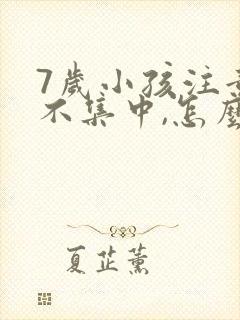 7歲小孩注意
不集中,怎麼
夏芷薰